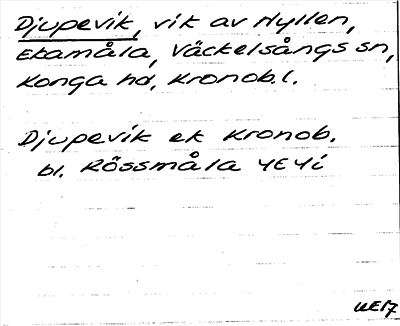 Djupevik, vik av Hyllen,
Ekamåla, Väckelsångs sn,
Konga hd, Kronob.l.
Djupevik ek Kronob.
bl. Rössmåla 4E4i